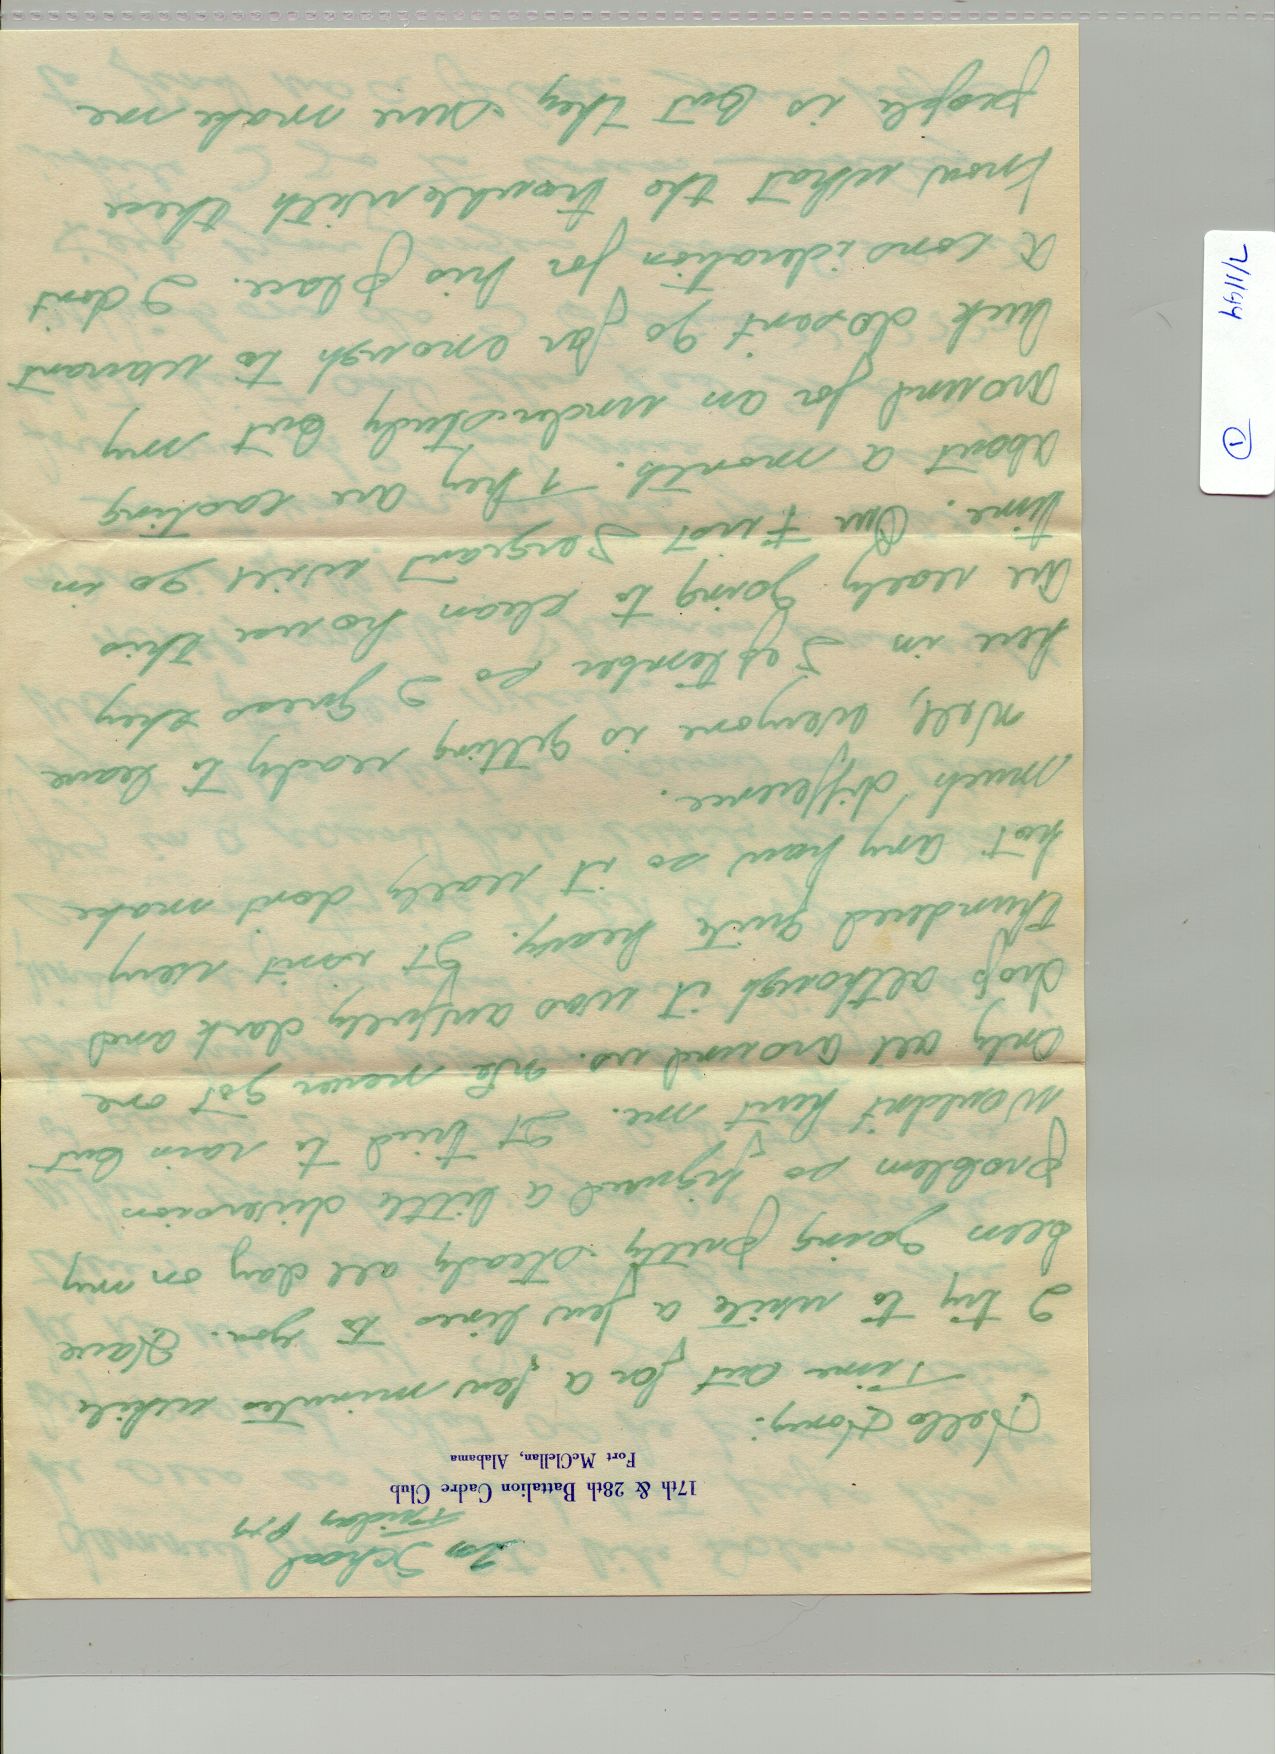 In School
Friday P.M
17th & 28th Battalion Cadre Club
Fort McClellan, Alabama
Hello Honey:
Time out for a few minutes while
I try to write a few lines to you. Have
been going pretty steady all day on my
problem so figured a little diversion
wouldn't hurt me. It tried to rain but
only all around us. We never got one
drop although it was awfully dark and
thundered quite heavy. It isn't very
hot any how so it really dont make
much difference.
Well, everyone is getting ready to leave
here in September so I guess they
are really going to clean house this
time. Our First Sergeant will go in
about a month. They are casting
around for an understudy but my
luck dosent go far enough to warrant
a consideration for his place. I dont
know what the trouble with these
people is but they sure make me
7/1/44
1